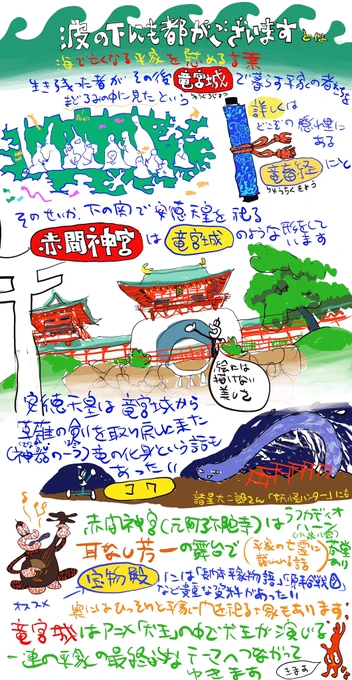 波の下にも都がございます とは
海で亡くなる平家を慰める言葉
生き残った者がその後 竜宮城 で暮らす平家の者たちを
りゅうぐうじょう
まどろみの中に見たという
詳しくは
にある
竜畜経 に
りゅうちくきょう
そのせいか、下の関で安徳天皇を祀る
赤間神宮 は 竜宮城 のような形をして
います
絵には
描けない
美しさ
安徳天皇は竜宮城から
(神器の一つ)竜の化身という話も
あったり
コワ
諸星大二郎さん
赤間神宮(元阿弥陀寺)はラフカディオ
ハーン
(小泉八雲)
耳なし芳一の舞台で
(平家の亡霊に
宝物殿 には「長門本平家物語」
など貴重な資料があったり
オススメ
奥にはひっそりと平家一門を祀る塚もあります
竜宮城はアニメ「犬王」の中で犬王が演じる
一連の平家の最終的なテーマへつながって
ゆきます